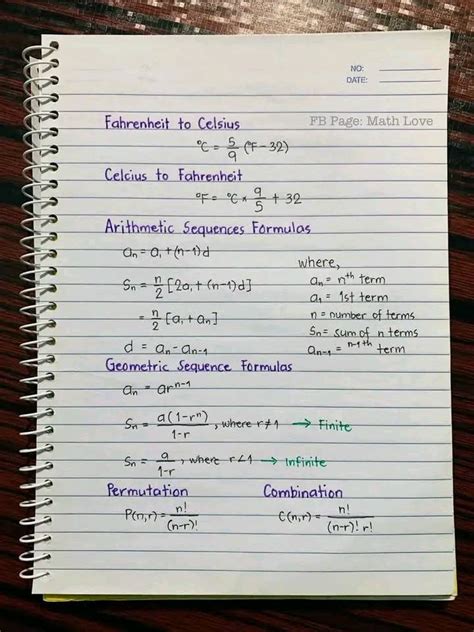 NO:
DATE:
FB Page: Math Love
Fahrenheit to Celsius
°C = 5/9 (°F - 32)
Celcius to Fahrenheit
°F = °C × 9/5 + 32
Arithmetic Sequences Formulas
aₙ = a₁ + (n-1)d
Sₙ = n/2 [2a₁ + (n-1)d]
= n/2 [a₁ + aₙ]
d = aₙ - aₙ₋₁
where,
aₙ = nᵗʰ term
a₁ = 1st term
n = number of terms
Sₙ = sum of n terms
aₙ₋₁ = ⁿ⁻¹ᵗʰ term
Geometric Sequence Formulas
aₙ = arⁿ⁻¹
Sₙ = a(1-rⁿ)/1-r, where r≠1 → Finite
Sₙ = a/1-r, where r<1 → Infinite
Permutation
P(n,r) = n!/(n-r)!
Combination
C(n,r) = n!/(n-r)! r!